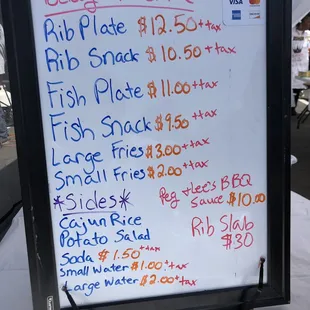 VISA
Rib Plate $12.50+tax
Rib Snack $10.50+tax
Fish Plate $11.00+tax
Fish Snack $9.50+tax
Large Fries $3.00+tax
Small Fries $2.00+tax
*Sides*
Peg +lee's BBQ
Sauce $10.00
Cajun Rice
Potato Salad
Rib Slab
$30
Soda $1.50+tax
Small Water $1.00+tax
Large Water $2.00+tax